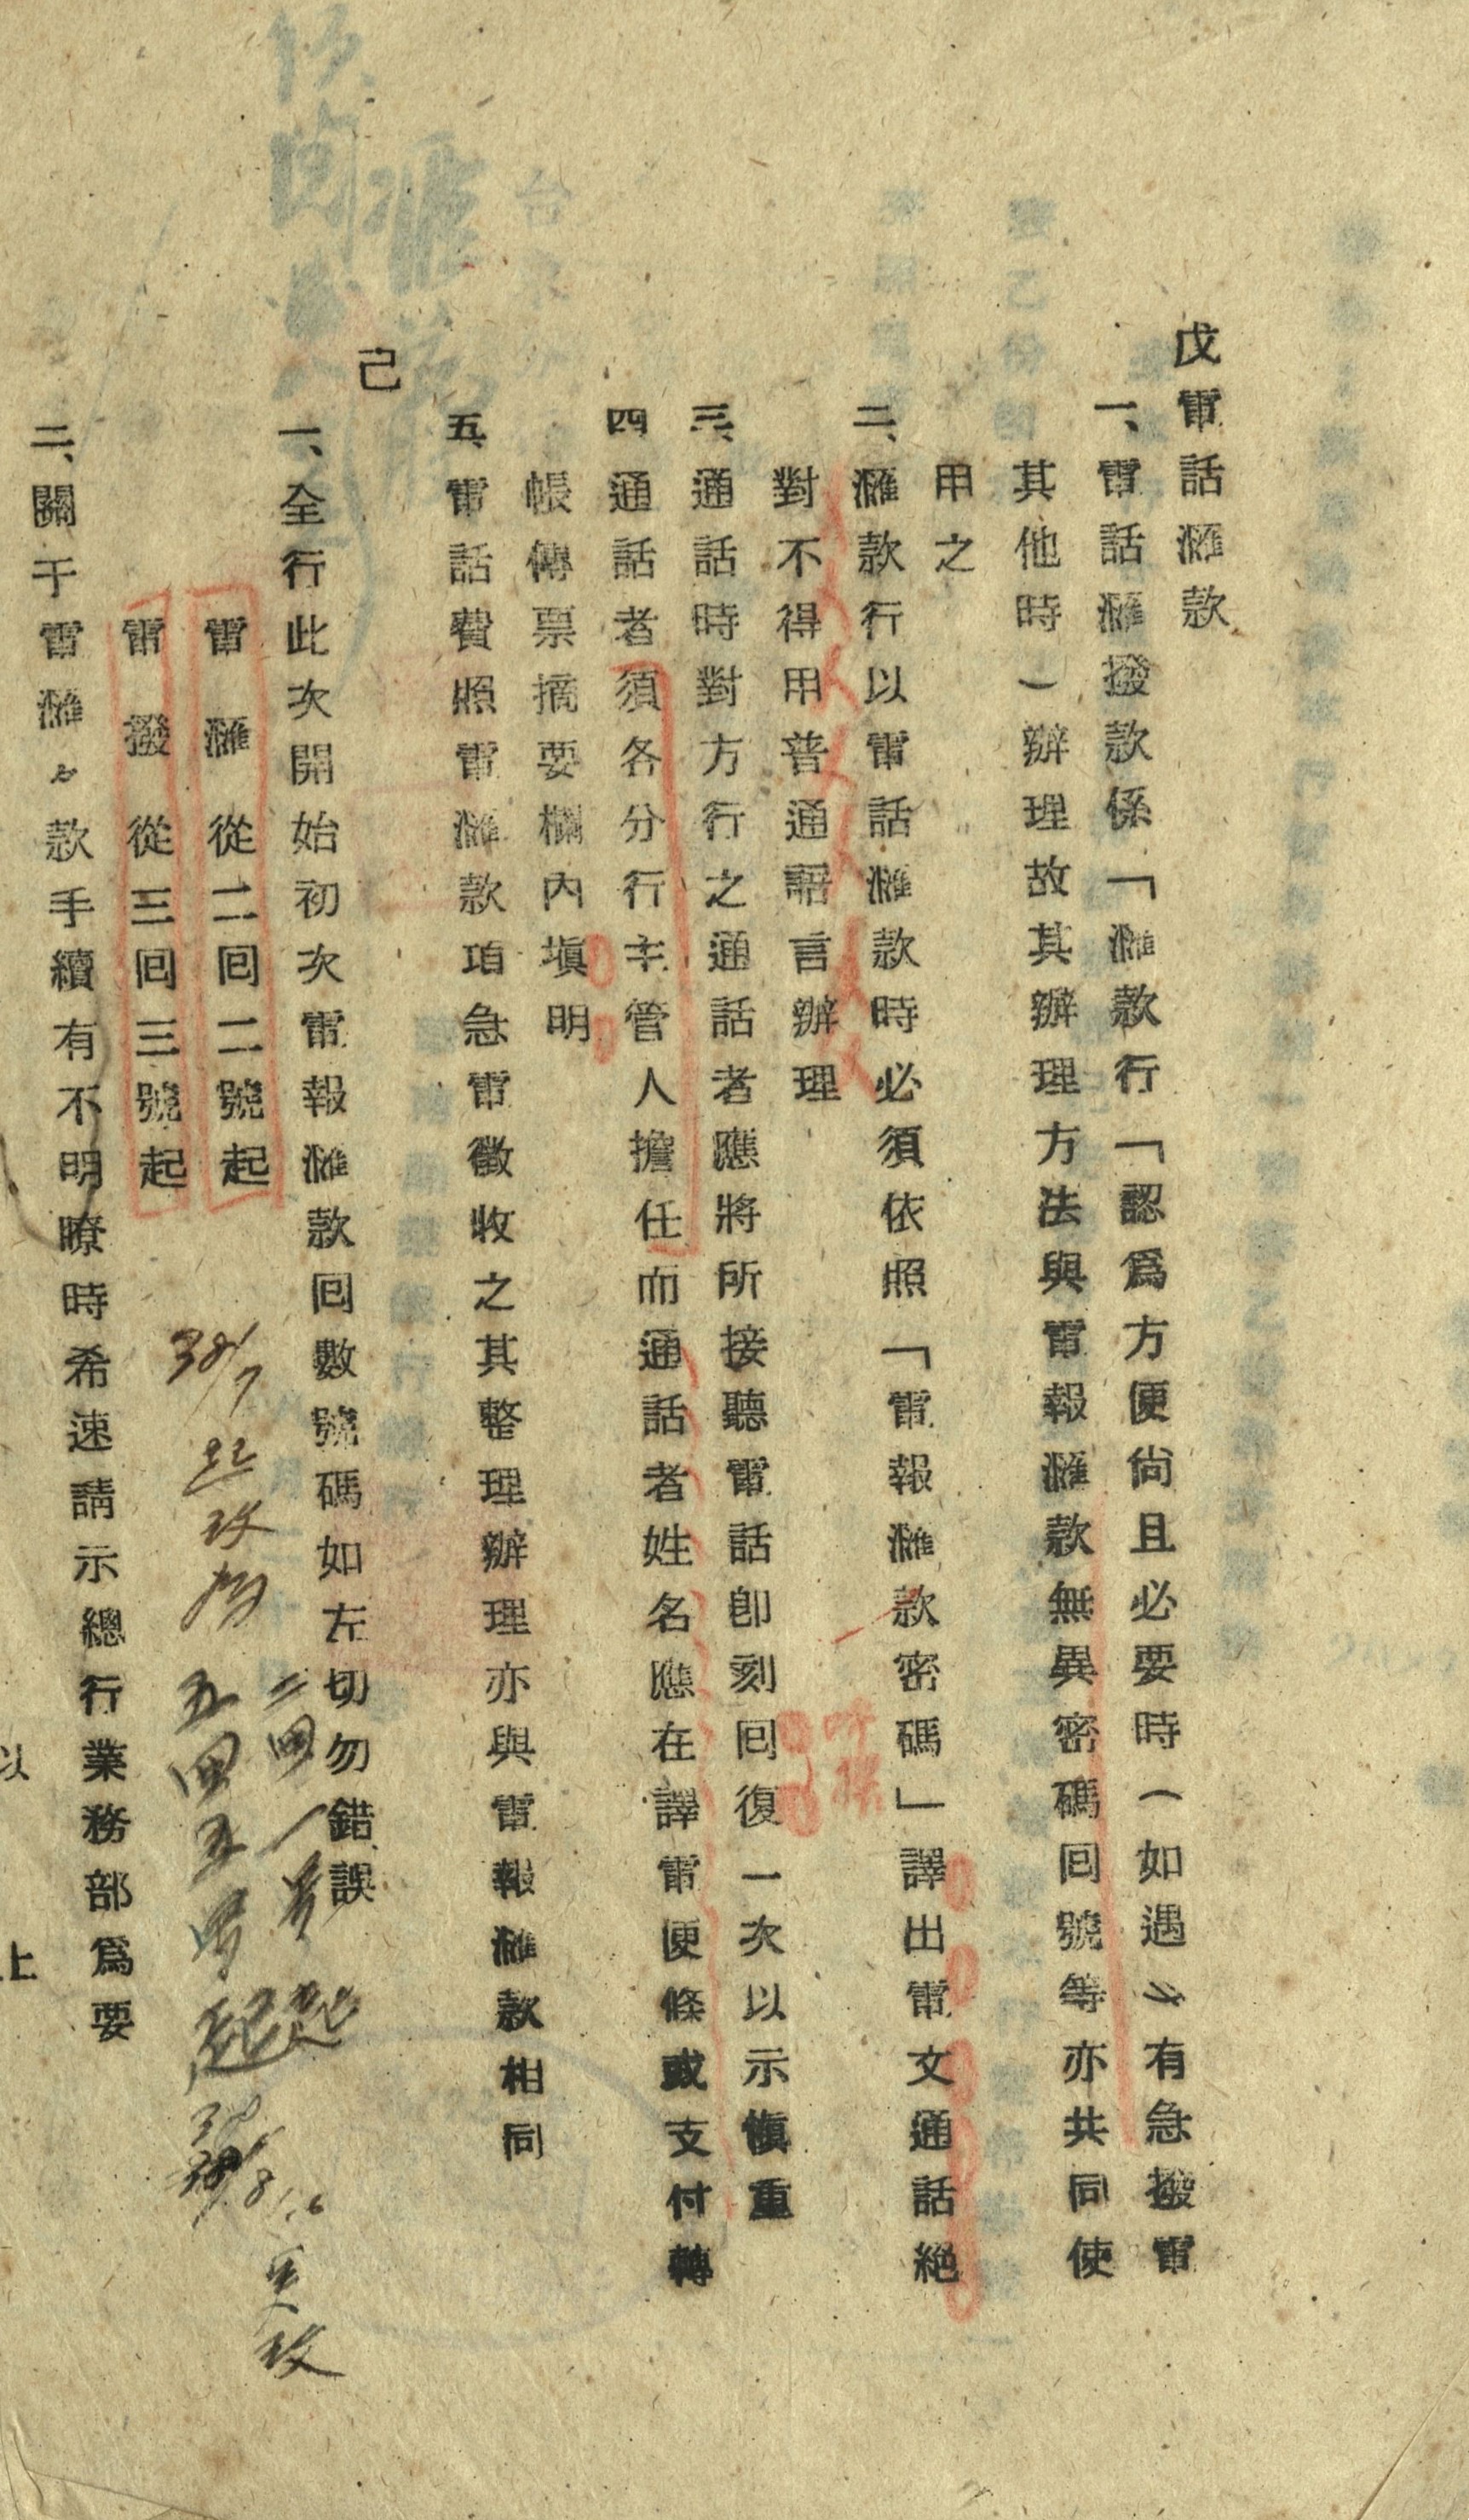 戊電話滙款
一、電話滙撥款係「滙款行「認爲方便尙且必要時（如遇々有急撥電
其他時）辦理故其辦理方法與電報滙款無異密碼回號等亦共同使
用之
二、滙款行以電話滙款時必須依照「電報滙款密碼」譯出電文通話絕
對不得用普通語言辦理
三、通話時對方行之通話者應將所接聽電話卽刻回復一次以示愼重
四通話者須各分行主管人擔任而通話者姓名應在譯電便條或支付轉
帳傳票摘要欄內塡明
五、電話費照電滙款項急電徵收之其整理辦理亦與電報滙款相同
己
一、全行此次開始初次電報滙款回數號碼如左切勿錯誤
電滙從二回二號起
二回一號起
電撥從三回三號起
38/7
改為
五回五号起
38/8
改
二、關于電滙々款手續有不明瞭時希速請示總行業務部爲要
以上